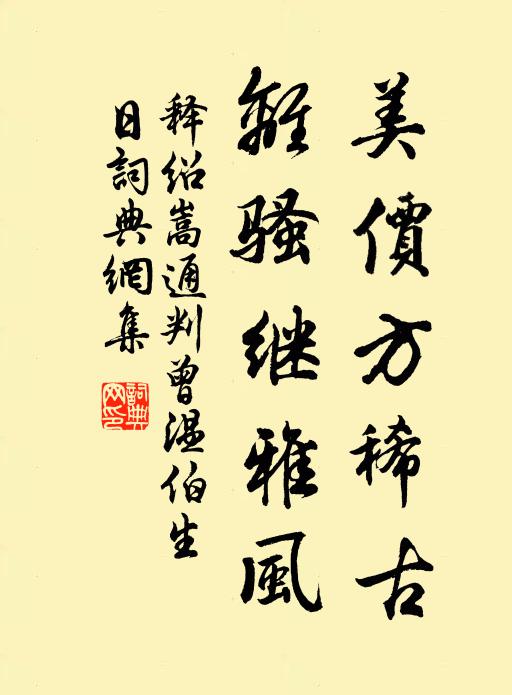 美價方稀古
離騷继雅風
释绍嵩通判曾温伯生
日詞典網集
詞典网印